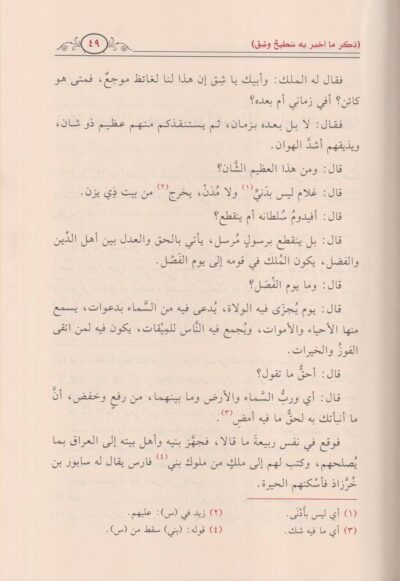 (ذكر ما أخبر به سطيحٌ وشِق)
٤٩
فقال له الملك: وأبيك يا شِق إن هذا لنا لغائظ موجعٌ، فمتى هو
كائن؟ أفي زماني أم بعده؟
فقـال: لا بل بعـده بزمان، ثـم يستنقذكم منهـم عظيـم ذو شـان،
ويذيقهم أشدَّ الهوان.
قال: ومن هذا العظيم الشَّان؟
قال: غلام ليس بدَنيٍّ(١) ولا مُدَنٍّ، يخرج(٢) من بيت ذِي يزن.
قال: أفيدومُ سُلطانه أم ينقطع؟
قال: بل ينقطع برسولٍ مُرسل، يأتي بالحق والعدل بين أهل الدِّين
والفضل، يكون المُلك في قومه إلى يوم الفَصْل.
قال: وما يوم الفْصَل؟
قال: يوم يُجزَى فيه الولاة، يُدعى فيه من السَّماء بدعوات، يسمع
منها الأحياء والأموات، ويُجمع فيه النَّاس للمِيْقات، يكون فيه لمن اتقى
الفوزُ والخيرات.
قال: أحقٌّ ما تقول؟
قال: أي وربُّ السَّماء والأرض وما بينهمـا، من رفعٍ وخفض، أنَّ
ما أنبأتك به لحقٌّ ما فيه أمض(٣).
فوقع في نفس ربيعةَ ما قالا، فجهَّز بنيه وأهل بيته إلى العراق بما
يُصلحهم، وكتب لهم إلى ملكٍ من ملوك بني(٤) فارس يقال له سابور بن
خُرَّزاذ فأسْكنهم الحيرة.
(١) أي ليس بأدْنَى.
(٢) زيد في (س): عليهم.
(٣) أي ما فيه شك.
(٤) قوله: (بني) سقط من (س).